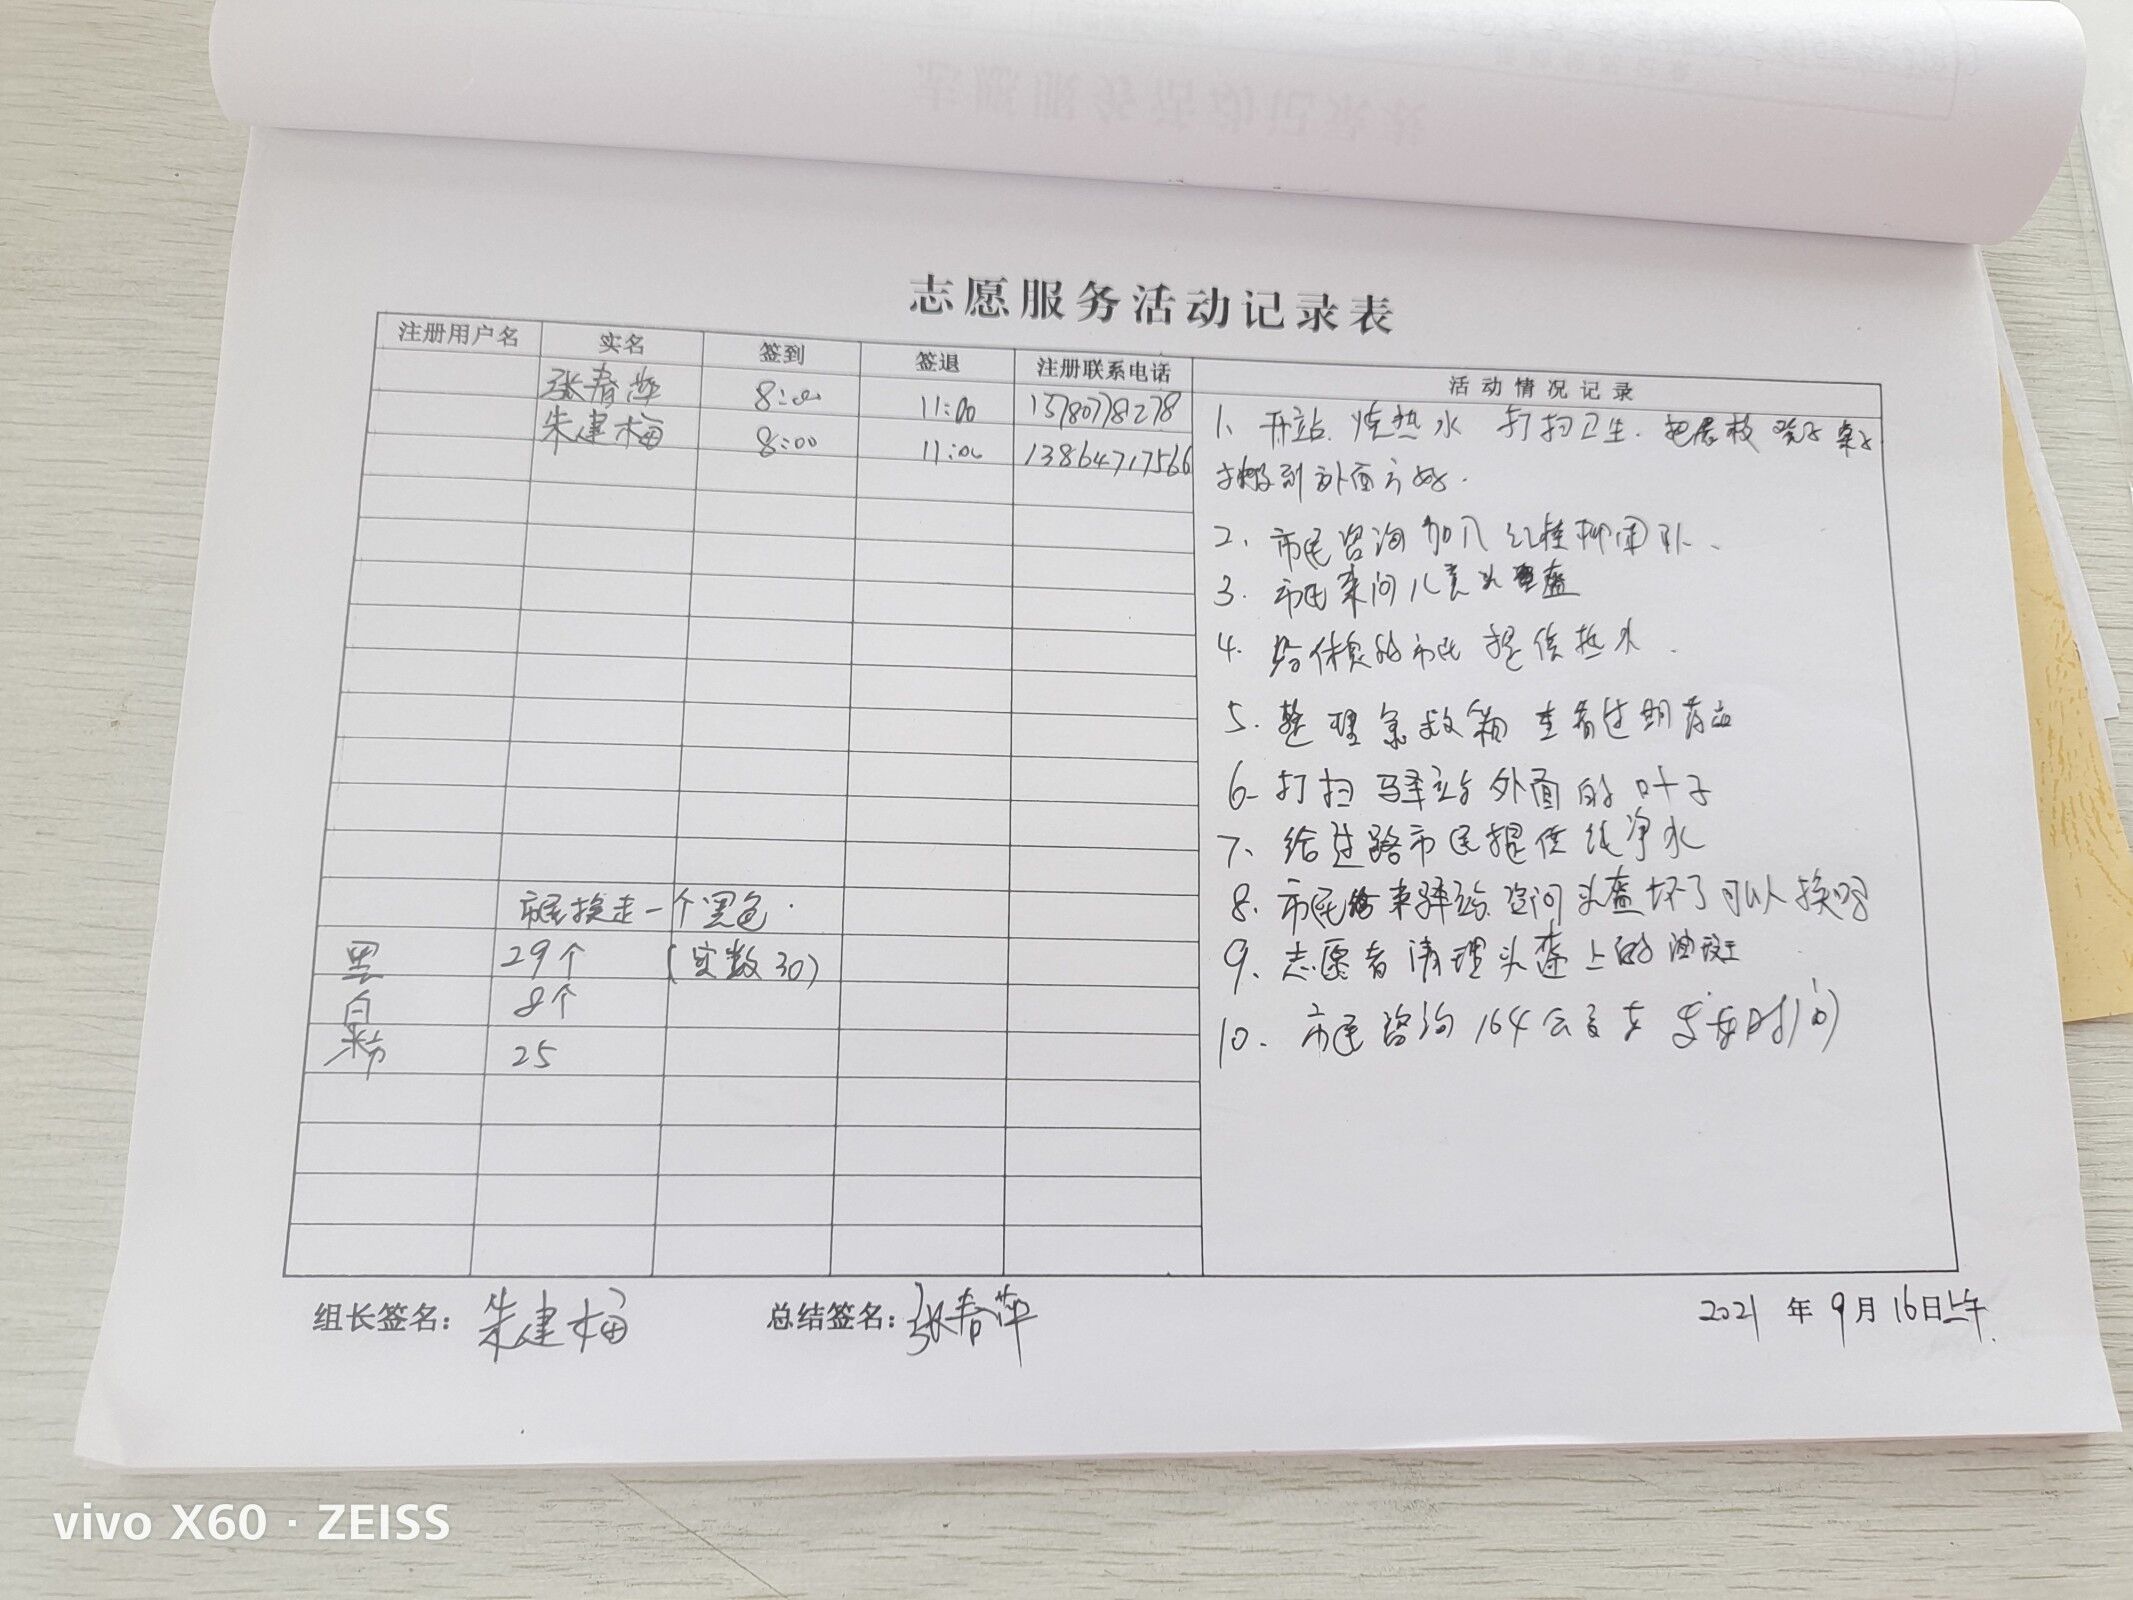 志愿服务活动记录表
注册用户名 实名 签到 签退 注册联系电话 活动情况记录
张春萍 8:00 11:00 15780778278
朱建梅 8:00 11:00 13864717566
1、开站. 烧热水 打扫卫生. 把
到外面
2、市民咨询加入红柳团队、
3. 市民来问儿童头盔
4. 给休息的市民提供热水.
5. 整理急救箱 查看过期药品
6- 打扫驿站外面的叶子
7、给过路市民提供纯净水
8、市民来驿站咨问头盔坏了可以换吗
9、志愿者清理头盔上的油斑
10. 市民咨询164公交车发车时间
市民换走一个黑色.
黑 29个 (实数30)
白 8个
粉 25
组长签名: 朱建梅 总结签名: 张春萍 2021年9月16日上午.
vivo X60 · ZEISS